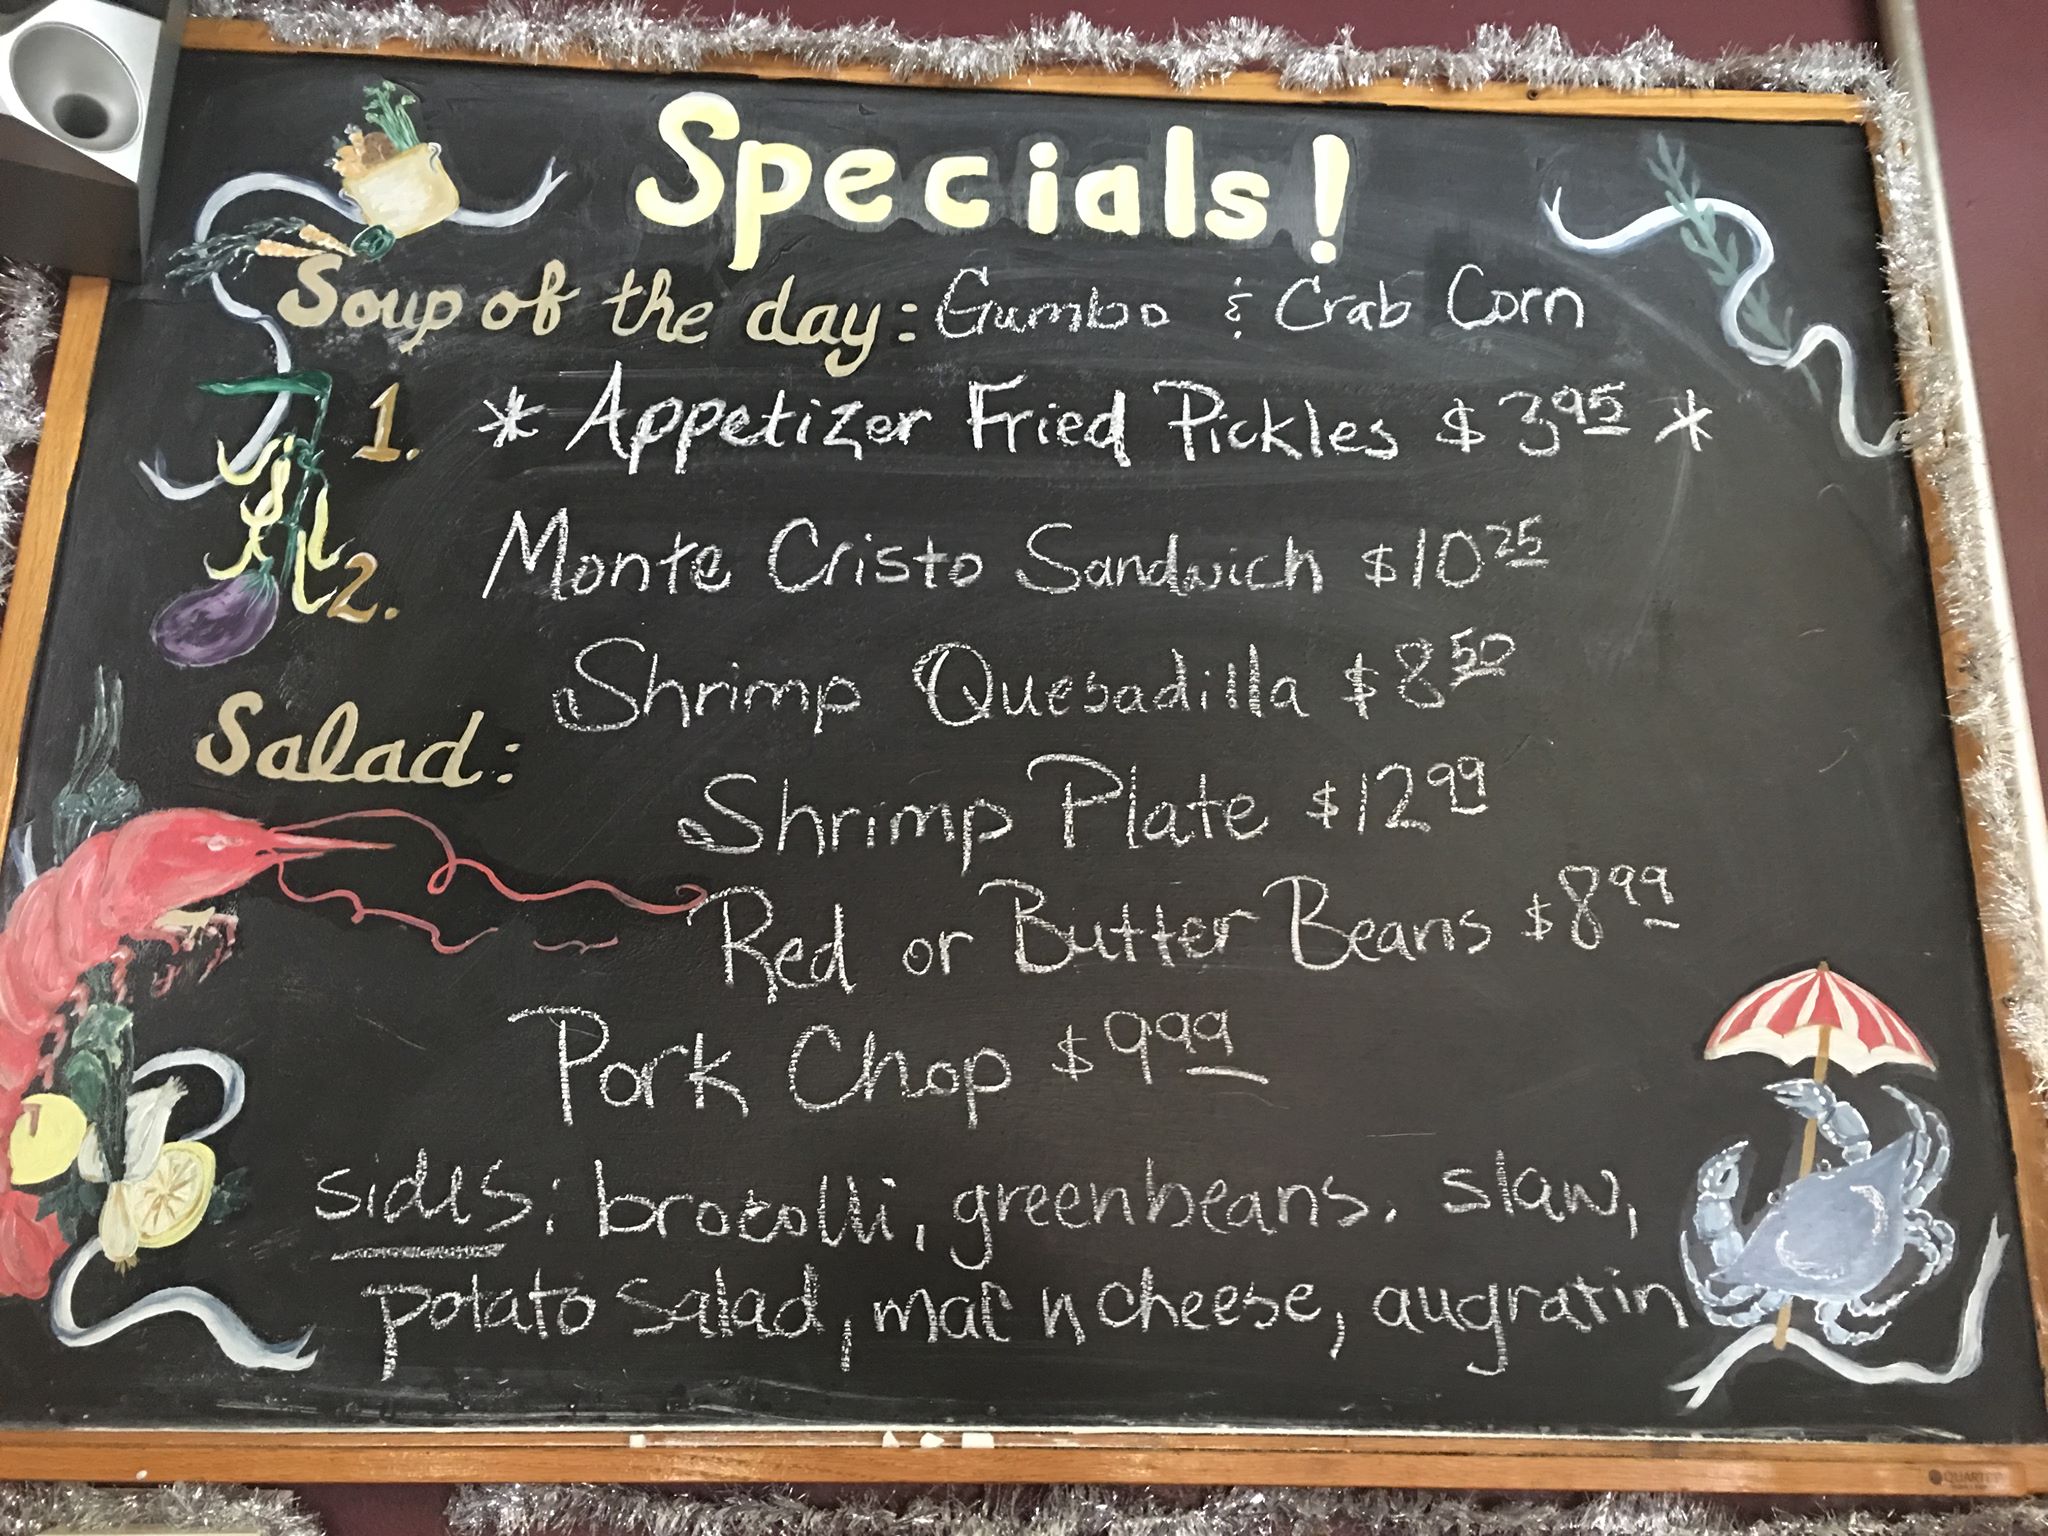 Specials!
Soup of the day: Gumbo & Crab Corn
1. * Appetizer Fried Pickles $3.95 *
Monte Cristo Sandwich $10.25
2.
Shrimp Quesadilla $8.50
Salad:
Shrimp Plate $12.99
Red or Butter Beans $8.99
Pork Chop $9.99
sides: brocolli, greenbeans. slaw,
potato salad, mac n cheese, augratin
QUARTET